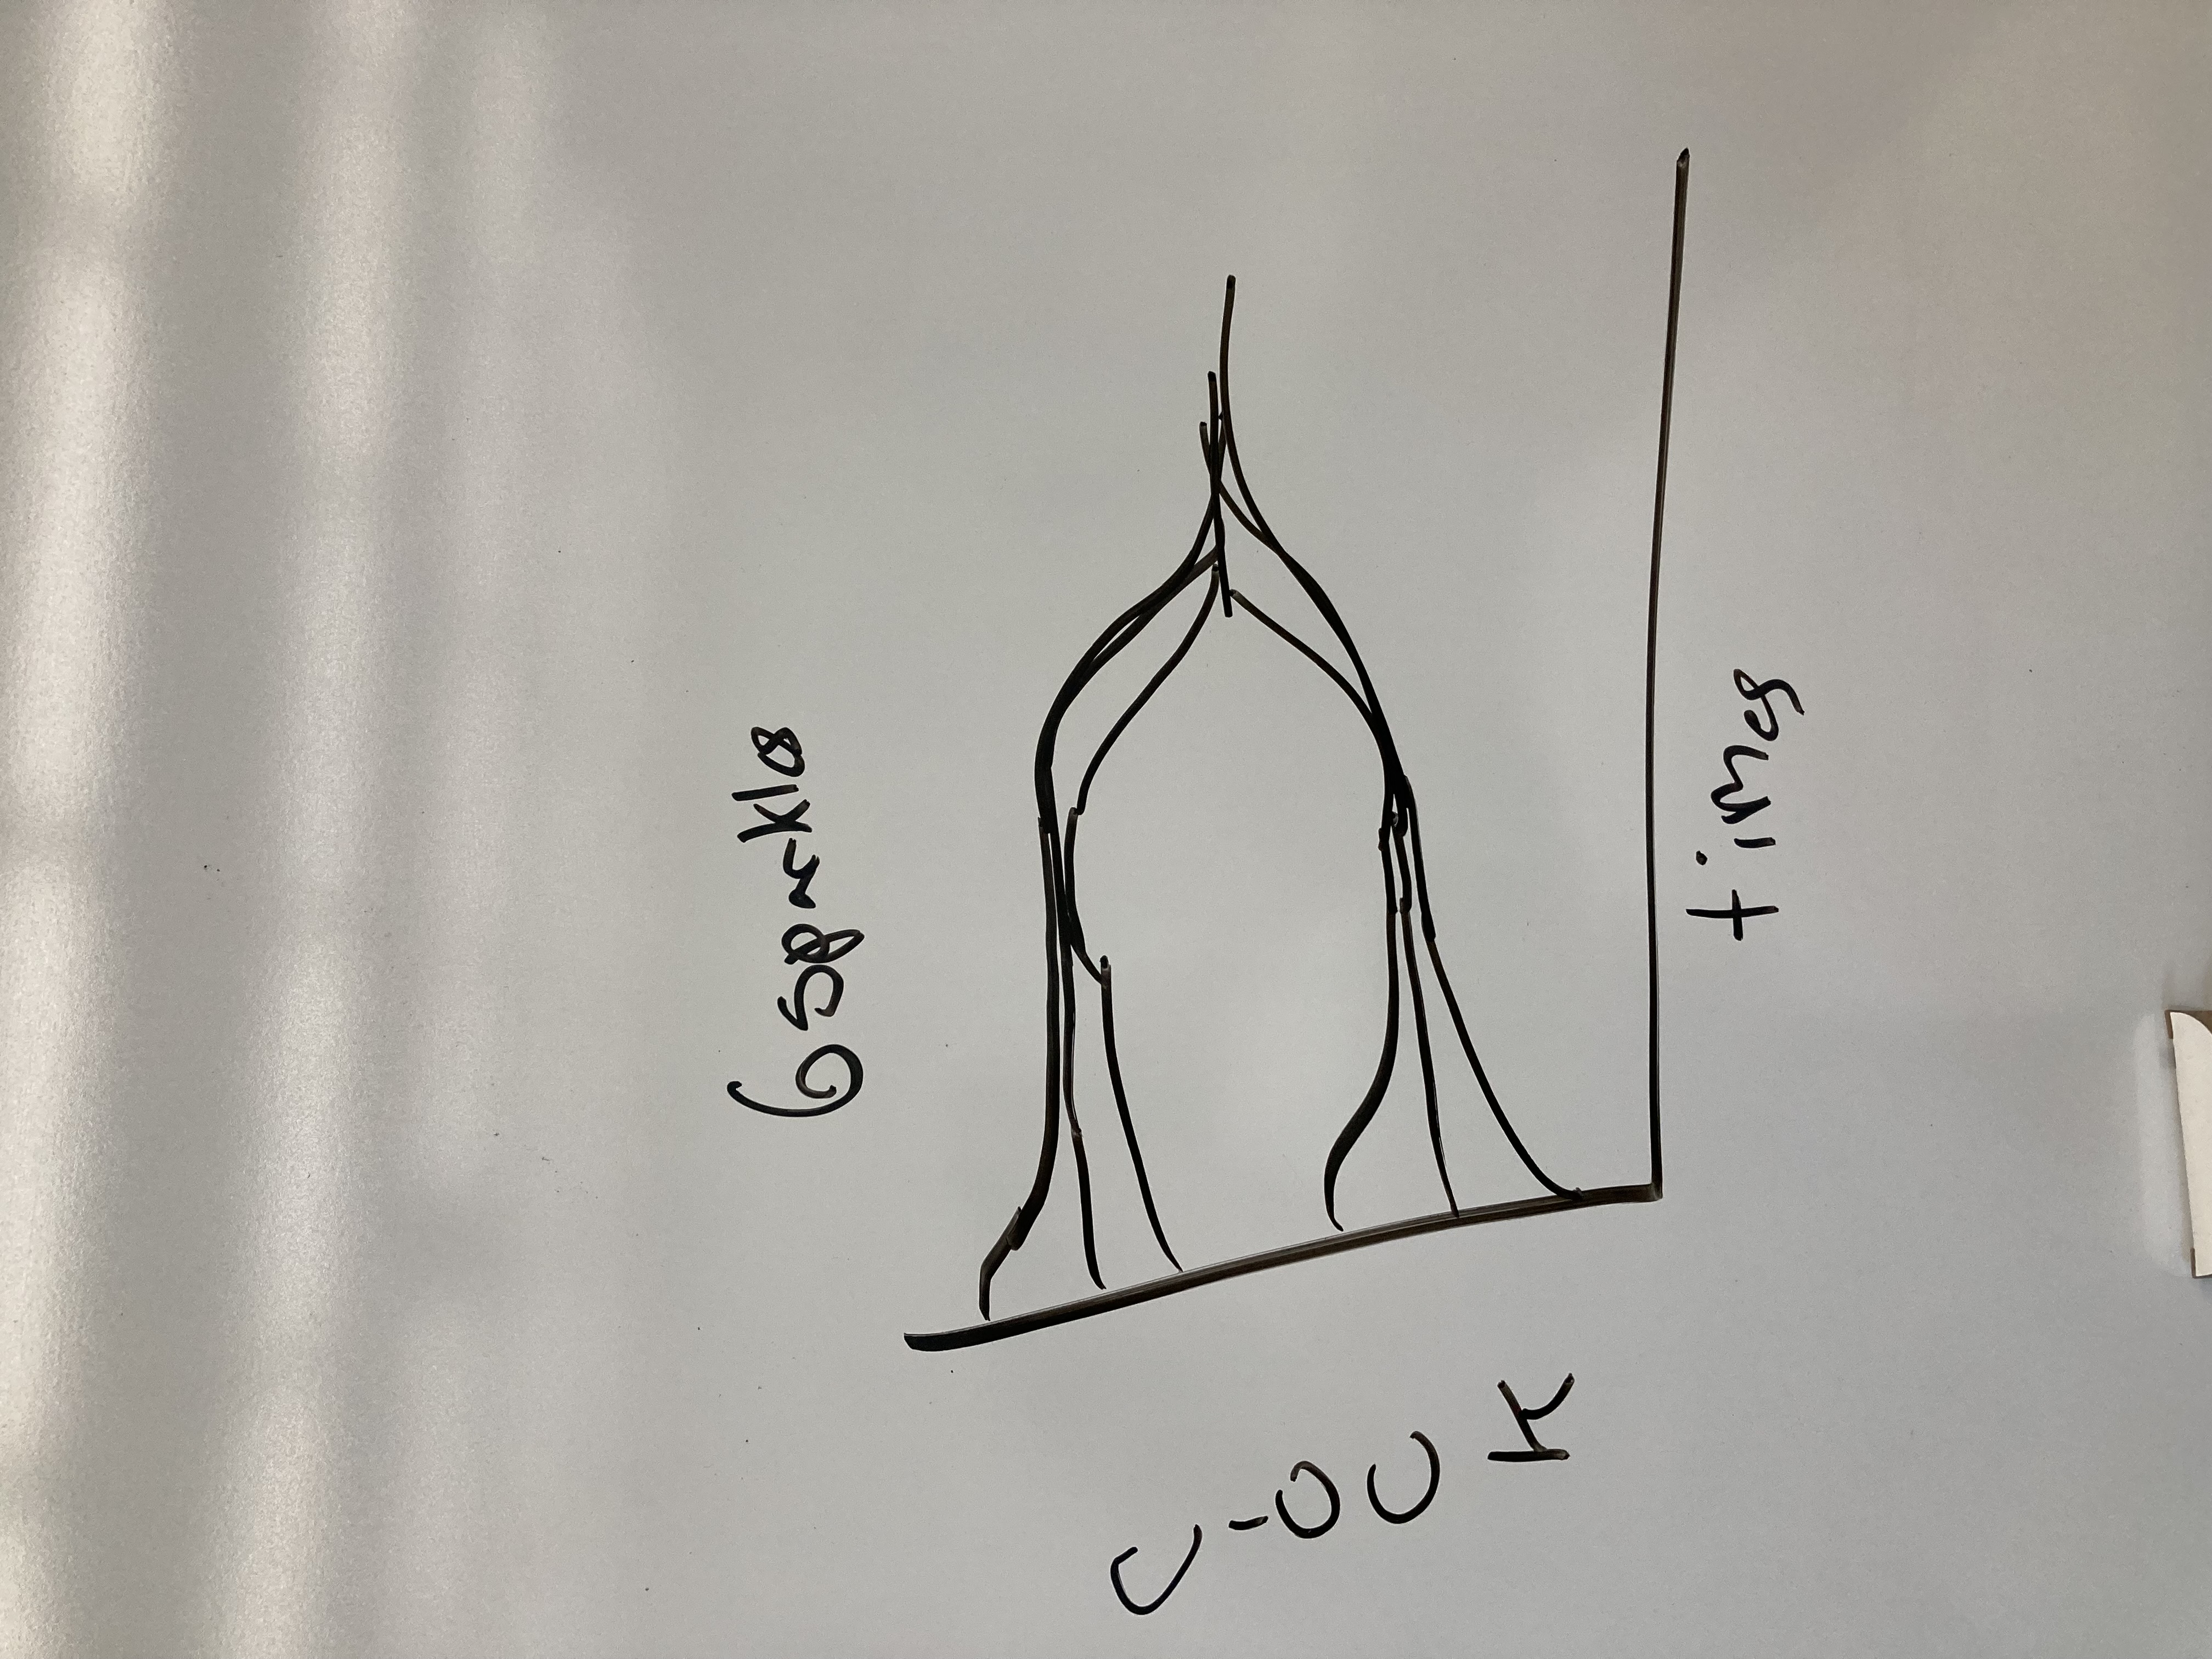 6 sparkles
C-OCK
times